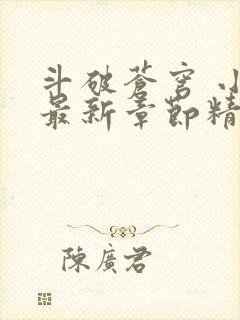 斗破蒼穹 小
最新章節精
陳廣君